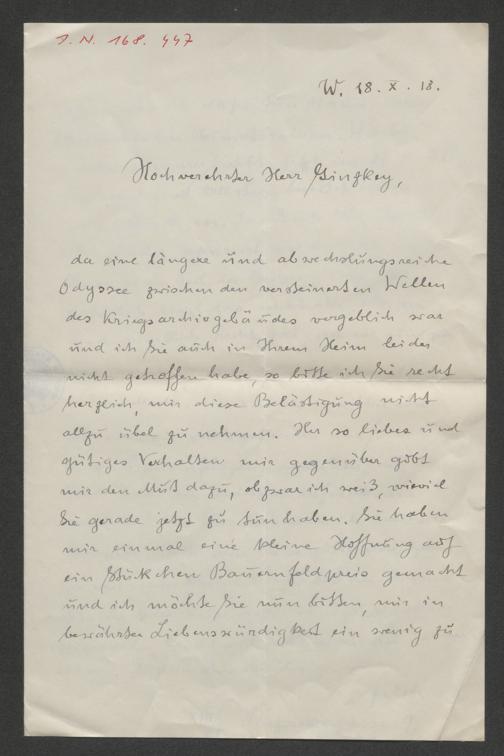 I. N. 168. 447
W. 18. X. 18.
Hochverehrter Herr Ginzkey,
da eine längere und abwechslungsreiche
Odyssee zwischen den versteinerten Wellen
des Kriegsarchivgebäudes vergeblich war
und ich Sie auch in Ihrem Heim leider
nicht getroffen habe, so bitte ich Sie recht
herzlich, mir diese Belästigung nicht
allzu übel zu nehmen. Ihr so liebes und
gütiges Verhalten mir gegenüber gibt
mir den Mut dazu, obzwar ich weiß, wieviel
Sie gerade jetzt zu tun haben. Sie haben
mir einmal eine kleine Hoffnung auf
ein Stückchen Bauernfeldpreis gemacht
und ich möchte Sie nun bitten, mir in
bewährter Liebenswürdigkeit ein wenig zu